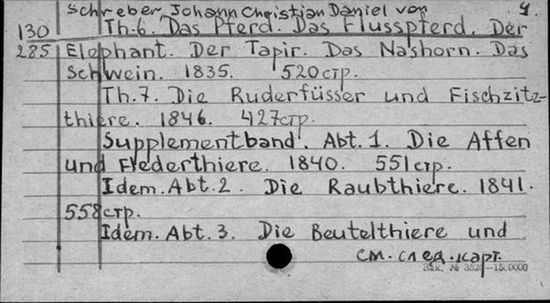 Schreber, Johann Christian Daniel von 4.
130 Th.6. Das Pferd. Das Flusspferd. Der
285 Elephant. Der Tapir. Das Nashorn. Das
Schwein. 1835. 520 стр.
Th.7. Die Ruderfüsser und Fischzitz-
thiere. 1846. 427 стр.
Supplementband. Abt. 1. Die Affen
und Flederthiere. 1840. 551 стр.
Idem. Abt. 2. Die Raubthiere. 1841.
558 стр.
Idem. Abt. 3. Die Beutelthiere und
см. след. карт.
Зак. №